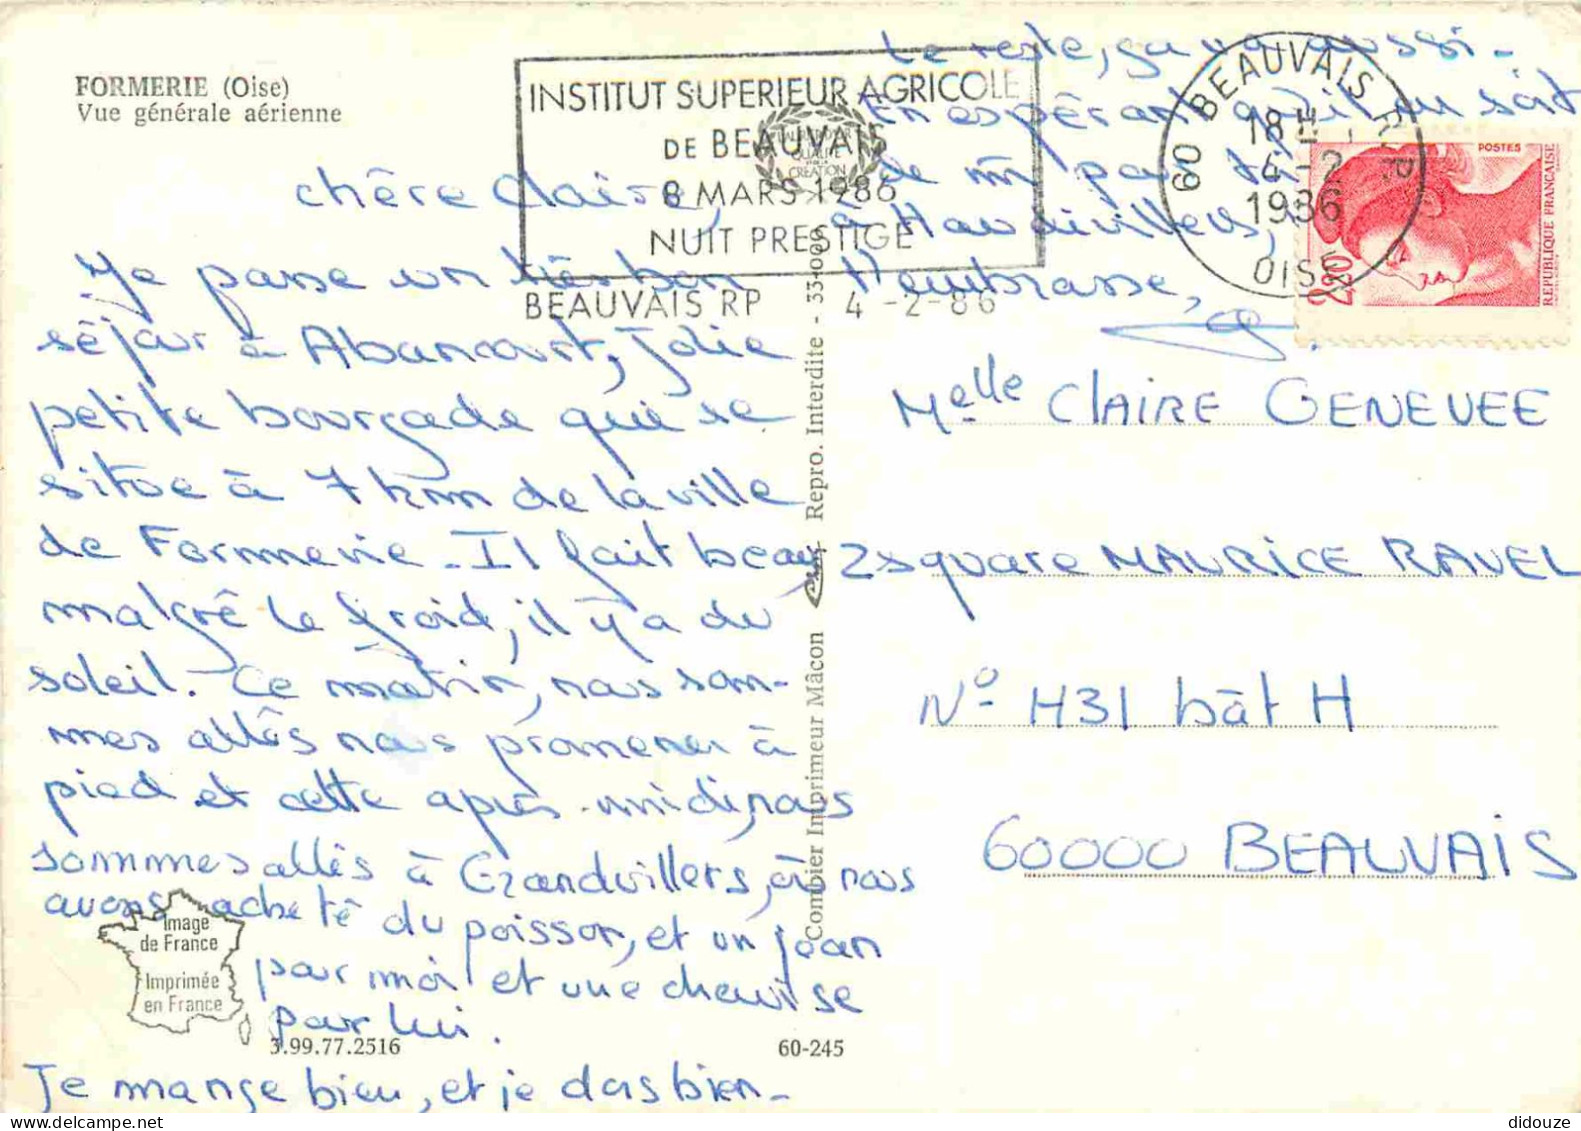 FORMERIE (Oise)
Vue générale aérienne
INSTITUT SUPERIEUR AGRICOLE
DE BEAUVAIS
8 MARS 1986
NUIT PRESTIGE
BEAUVAIS RP 4 -2-86
QUALITE
CREATION
60 BEAUVAIS R.P.
18 H
4 - 2
1986
OISE
POSTES
2,20
REPUBLIQUE FRANCAISE
chère Claire,
Je passe un très bon
séjour à Abancourt, Jolie
petite bourgade qui se
situe à 7 km de la ville
de Formerie - Il fait beau
malgré le froid, il y a du
soleil. Ce matin, nous som-
mes allés nous promener à
pied et cette après-midi, nous
sommes allés à Grandvillers, où nous
avons acheté du poisson, et un jean
par moi et une chemise
par lui.
Je mange bien, et je dors bien -
Le reste, ça va aussi -
En espérant qu'il en soit
de m̂ par
à Haudivillers,
t'embrasse,
Melle CLAIRE GENEVEE
2 square MAURICE RAVEL
N° H31 bât H
60000 BEAUVAIS
Combier Imprimeur Mâcon Repro. Interdite - 33-009
Image
de France
Imprimée
en France
3.99.77.2516
60-245
didouze